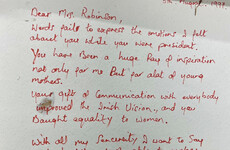 Dear Mrs. Robinson,
Words fails to express the emotions I felt
about you while you were president.
You have Been a huge Ray of inspiration
not only for me But for alot of young
mothers.
Your gift of communication with everybody
improved the Irish Vision., and you
Baught equality to women.
With all my Sencerity I want to Say